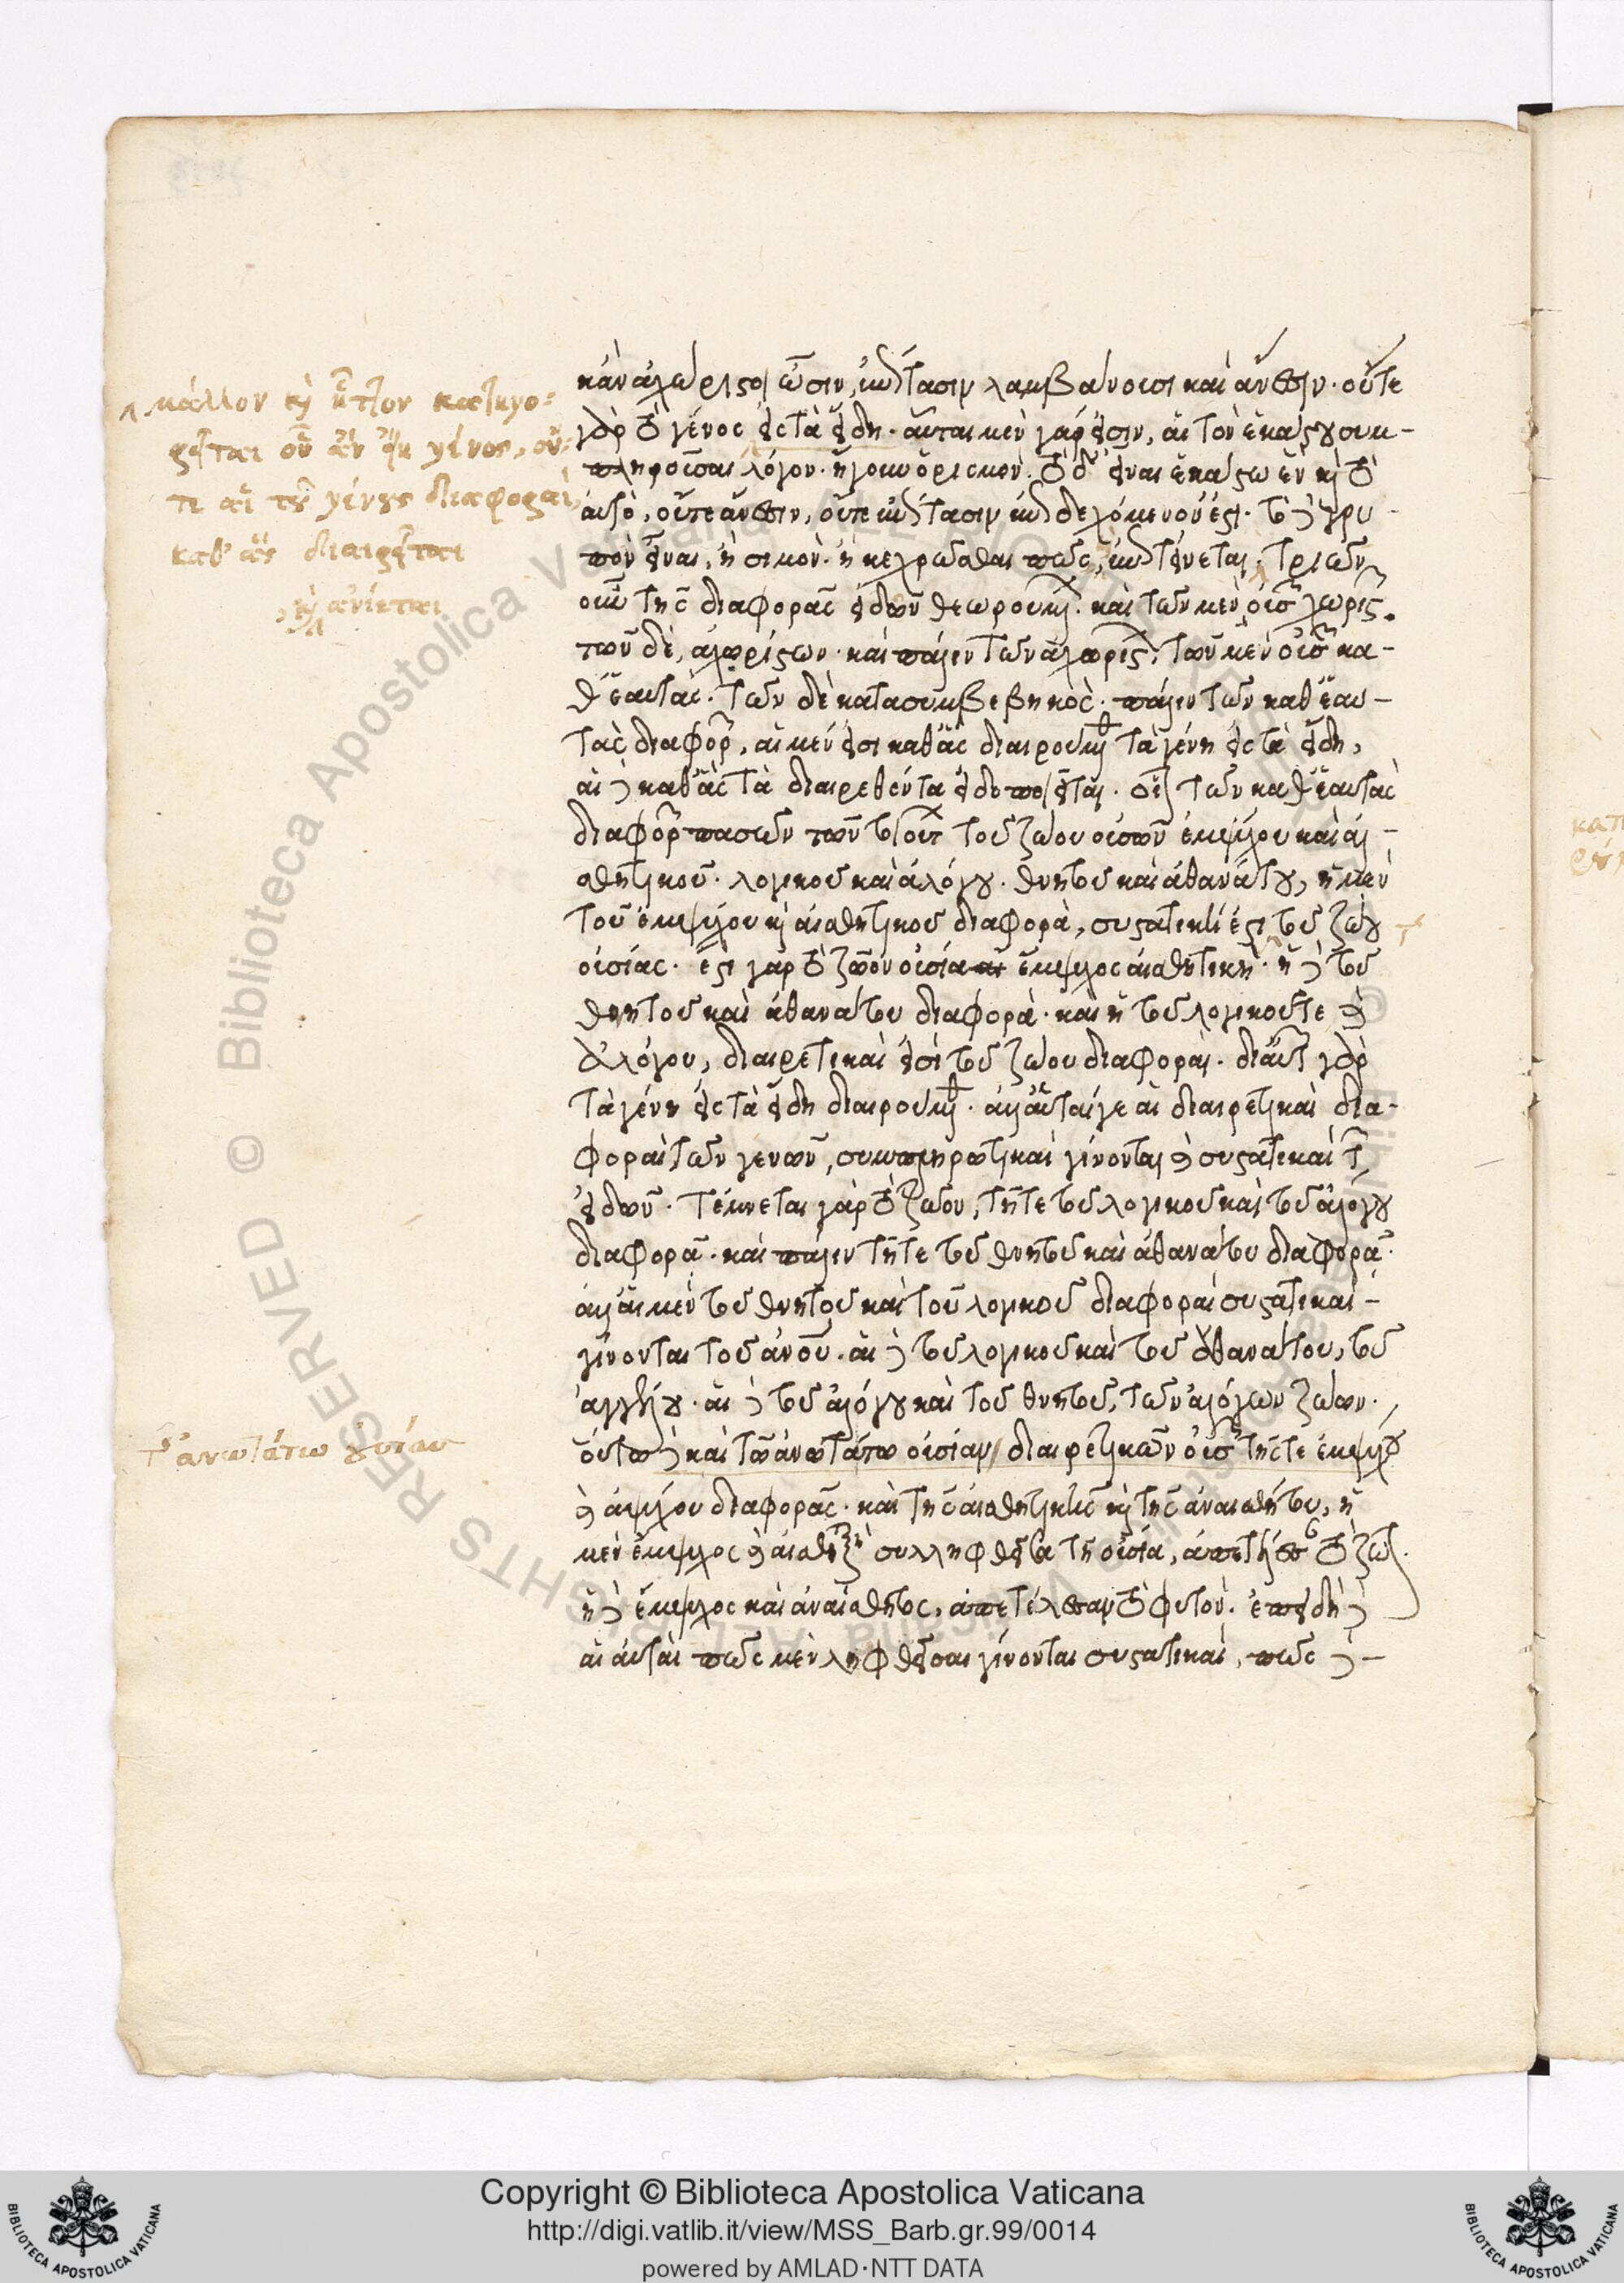 μᾶλλον κὶ ἧττον κατηγο=
ρεῖται οὗ ἂν ᾖ γένος, οὔ=
τε αἱ τοῦ γένους διαφοραὶ,
καθ' ἃς διαιρεῖται
κὶ ἀνίεται
κἂν ἀχώριστοι ὦσιν, ἐπίτασιν λαμβάνουσι καὶ ἄνεσιν. οὔτε
γὰρ τὸ γένος εἰς τὰ εἴδη. αὗται μὲν γάρ εἰσιν, αἱ τὸν ἑκάστου συμ-
πληροῦσαι λόγον. ἤγουν ὁρισμόν. τὸ δ' εἶναι ἑκάστω ἓν κὶ τὸ
αὐτὸ, οὔτε ἄνεσιν, οὔτε ἐπίτασιν ἐπιδεχόμενον ἐστι. τὸ δὲ γρυ-
πὸν εἶναι, ἢ σιμὸν. ἢ κεχρῶσθαι πῶς, ἐπιτείνεται. τριῶν
οὖν τῆς διαφορᾶς εἰδῶν θεωρουμένων. καὶ τῶν μὲν οὐσῶν χωριστῶν.
τῶν δὲ, ἀχωρίστων. καὶ πάλιν τῶν ἀχωρίστων, τῶν μὲν οὐσῶν κα-
θ' ἑαυτὰς. τῶν δὲ κατὰ συμβεβηκὸς. πάλιν τῶν καθ' ἑαυ-
τὰς διαφορῶν, αἱ μέν εἰσι καθ' ἃς διαιρούμεθα τὰ γένη εἰς τὰ εἴδη,
αἱ δὲ καθ' ἃς τὰ διαιρεθέντα εἰδοποιεῖται. οἷον τῶν καθ' ἑαυτὰς
διαφορῶν πασῶν τῶν τοιούτων τοῦ ζώου οὐσῶν ἐμψύχου καὶ αἰ-
σθητικοῦ. λογικοῦ καὶ ἀλόγου. θνητοῦ καὶ ἀθανάτου, ἡ μὲν
τοῦ ἐμψύχου κὶ αἰσθητικοῦ διαφορὰ, συστατική ἐστι τοῦ ζώου
οὐσίας. ἔστι γὰρ τὸ ζῶον οὐσία ἔμψυχος αἰσθητική. ἡ δὲ τοῦ
θνητοῦ καὶ ἀθανάτου διαφορὰ. καὶ ἡ τοῦ λογικοῦ τε καὶ
ἀλόγου, διαιρετικαὶ εἰσὶ τοῦ ζώου διαφοραὶ. δι' αὐτῶν γὰρ
τὰ γένη εἰς τὰ εἴδη διαιρούμεθα. ἀλλ' αὗταί γε αἱ διαιρετικαὶ δια-
φοραὶ τῶν γενῶν, συμπληρωτικαὶ γίνονται καὶ συστατικαὶ τῶν
εἰδῶν. τέμνεται γὰρ τὸ ζῶον, τῇ τε τοῦ λογικοῦ καὶ τοῦ ἀλόγου
διαφορᾷ. καὶ πάλιν τῇ τε τοῦ θνητοῦ καὶ ἀθανάτου διαφορᾷ.
ἀλλ' αἱ μὲν τοῦ θνητοῦ καὶ τοῦ λογικοῦ διαφοραὶ συστατικαὶ-
γίνονται τοῦ ἀνου. αἱ δὲ τοῦ λογικοῦ καὶ τοῦ ἀθανάτου, τοῦ
ἀγγέλου. αἱ δὲ τοῦ ἀλόγου καὶ τοῦ θνητοῦ, τῶν ἀλόγων ζώων.
τῆς ἀνωτάτω οὐσίας
οὕτω δὲ καὶ τῶ ἀνωτάτω οὐσίαν διαιρετικῶν οὐσῶν τῆς τε ἐμψύχου
καὶ ἀψύχου διαφορᾶς. καὶ τῆς αἰσθητικῆς κὶ τῆς ἀναισθήτου, ἡ
μὲν ἔμψυχος καὶ αἰσθητικὴ συλληφθεῖσα τῇ οὐσία, ἀπετέλεσε τὸ ζῶον.
ἡ δὲ ἔμψυχος καὶ ἀναίσθητος, ἀπετέλεσαν τὸ φυτόν. ἐπειδὴ δὲ
αἱ αὐταὶ πῶς μὲν ληφθεῖσαι γίνονται συστατικαὶ, πῶς δὲ-
Copyright © Biblioteca Apostolica Vaticana
http://digi.vatlib.it/view/MSS_Barb.gr.99/0014
powered by AMLAD·NTT DATA